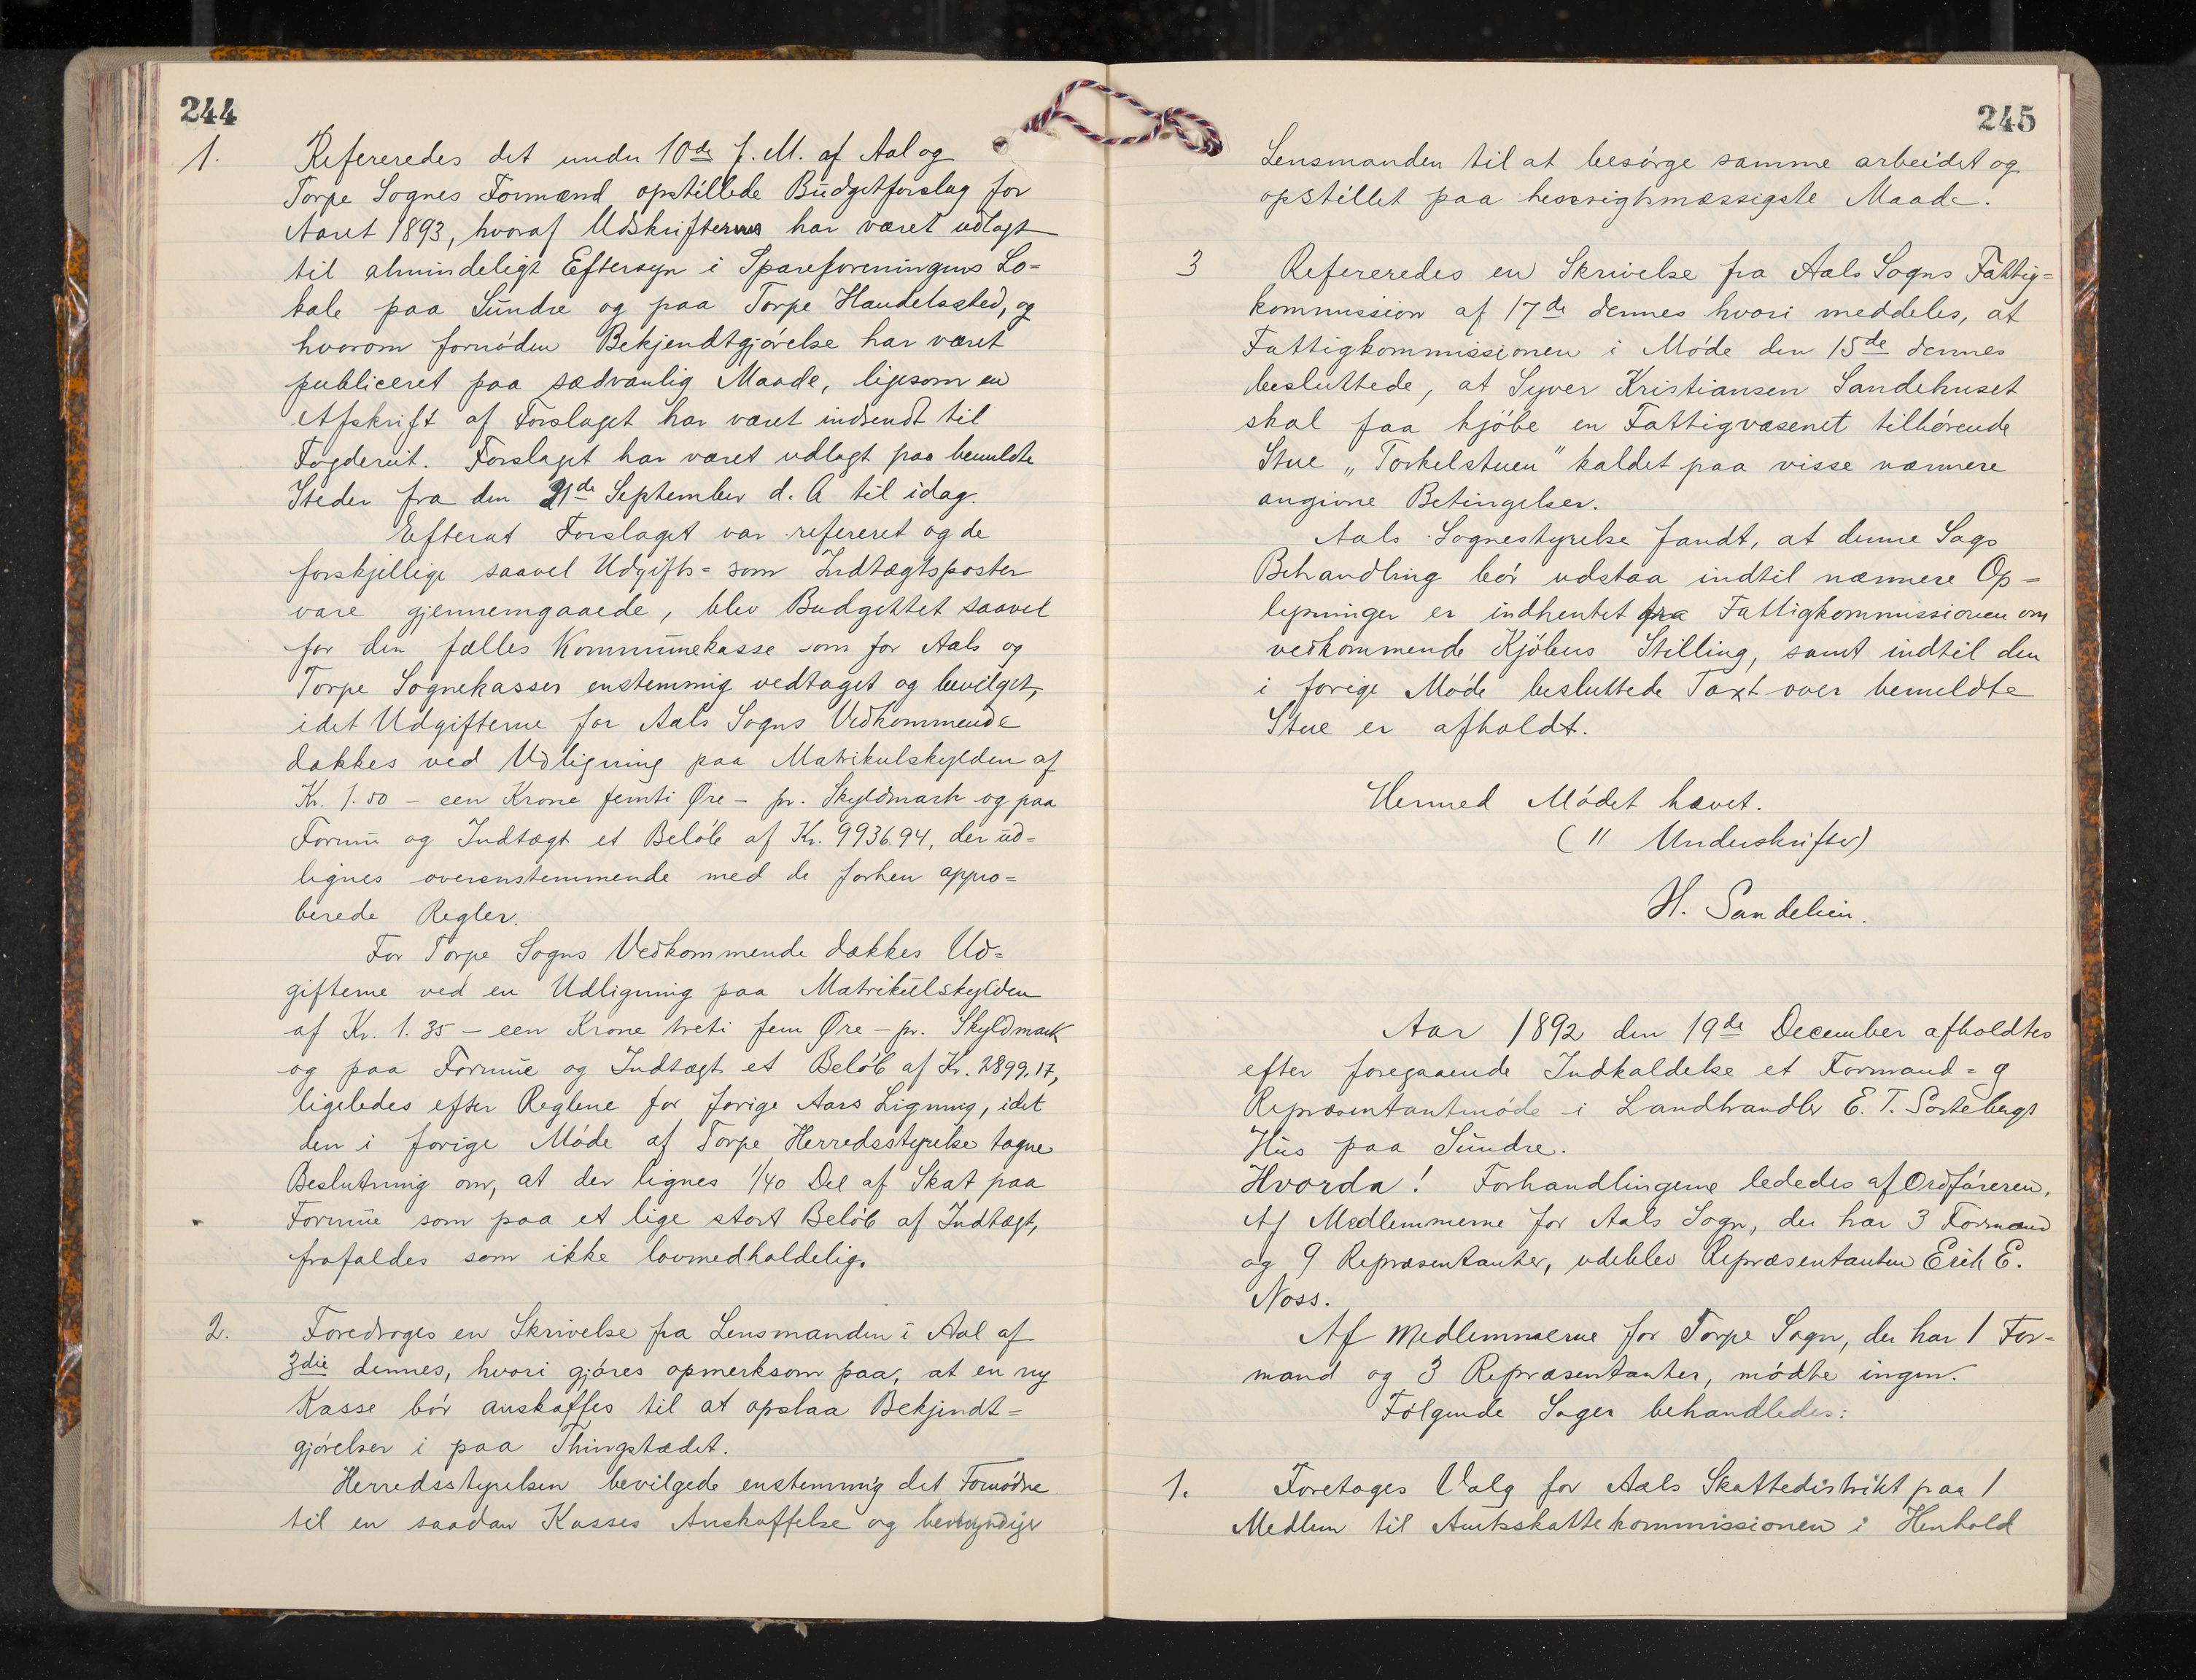 244
1. Refereredes det under 10de f. M. af Aal og
Torpe Sognes Formænd opstillede Budgetforslag for
Aaret 1893, hvoraf Udskrifterne har været udlagt
til almindeligt Eftersyn i Spareforeningens Lo=
kale paa Sundre og paa Torpe Handelssted, og
hvorom fornöden Bekjendtgjörelse har været
publiceret paa sædvanlig Maade, ligesom en
Afskrift af Forslaget har været indsendt til
Fogderiet. Forslaget har været udlagt paa bemeldte
Steder fra den 21de September d. A til idag.
Efterat Forslaget var refereret og de
forskjellige saavel Udgifts= som Indtægtsposter
vare gjennemgaaede, blev Budgettet saavel
for den fælles Kommunekasse som for Aals og
Torpe Sognekasser enstemmig vedtaget og bevilget,
idet Udgifterne for Aals Sogns Vedkommende
dækkes ved Udligning paa Matrikulskylden af
Kr. 1.50 - een Krone femti Øre - pr. Skyldmark og paa
Formue og Indtægt et Belöb af Kr. 9936.94, der ud=
lignes overensstemmende med de forhen appro=
berede Regler.
For Torpe Sogns Vedkommende dækkes Ud=
gifterne ved en Udligning paa Matrikulskylden
af Kr. 1.35 - een Krone treti fem Øre - pr. Skyldmark
og paa Formue og Indtægt et Belöb af Kr. 2899.17,
ligeledes efter Reglene for forige Aars Ligning, idet
den i forige Möde af Torpe Herredsstyrelse tagne
Beslutning om, at der lignes 1/40 Del af Skat paa
Formue som paa et lige stort Belöb af Indtægt,
frafaldes som ikke lovmedholdelig.
2. Foredroges en Skrivelse fra Lensmanden i Aal af
3die dennes, hvori gjöres opmerksom paa, at en ny
Kasse bör anskaffes til at opslaa Bekjendt=
gjörelser i paa Thingstedet.
Herredsstyrelsen bevilgede enstemmig det Fornödne
til en saadan Kasses Anskaffelse og bemyndiger
245
Lensmanden til at besörge samme arbeidet og
opstillet paa hensigtsmæssigste Maade.
3 Refereredes en Skrivelse fra Aals Sogns Fattig=
kommission af 17de dennes hvori meddeles, at
Fattigkommissionen i Möde den 15de dennes
besluttede, at Syver Kristiansen Sandehuset
skal faa kjöbe en Fattigvæsenet tilhörende
Stue „Torkelstuen" kaldet paa visse nærmere
angivne Betingelser.
Aals Sognestyrelse fandt, at denne Sags
Behandling bör udstaa indtil nærmere Op=
lysninger er indhentet fra Fattigkommissionen om
vedkommende Kjöbers Stilling, samt indtil den
i forige Möde besluttede Taxt over bemeldte
Stue er afholdt.
Hermed Mödet hævet.
(11 Underskrifter)
H. Sandelien.
Aar 1892 den 19de December afholdtes
efter foregaaende Indkaldelse et Formand= g
Repræsentantmöde i Landhandler E. T. Sortebergs
Hus paa Sundre.
Hvorda! Forhandlingerne lededes af Ordföreren.
Af Medlemmerne for Aals Sogn, der har 3 Formænd
og 9 Repræsentanter, udeblev Repræsentanten Erik E.
Noss.
Af Medlemmerne for Torpe Sogn, der har 1 For=
mand og 3 Repræsentanter, mödte ingen.
Fölgende Sager behandledes:
1. Foretages Valg for Aals Skattedistrikt paa 1
Medlem til Amtsskattekommissionen i Henhold